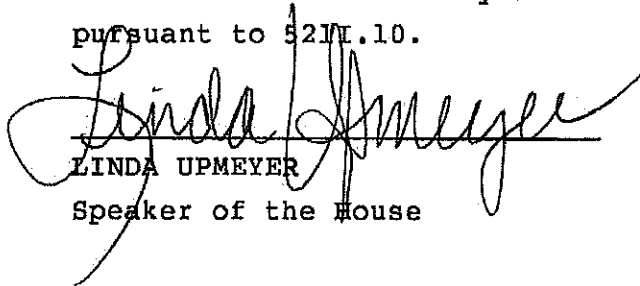 pursuant to 52II.10.
Linda Upmeyer
LINDA UPMEYER
Speaker of the House